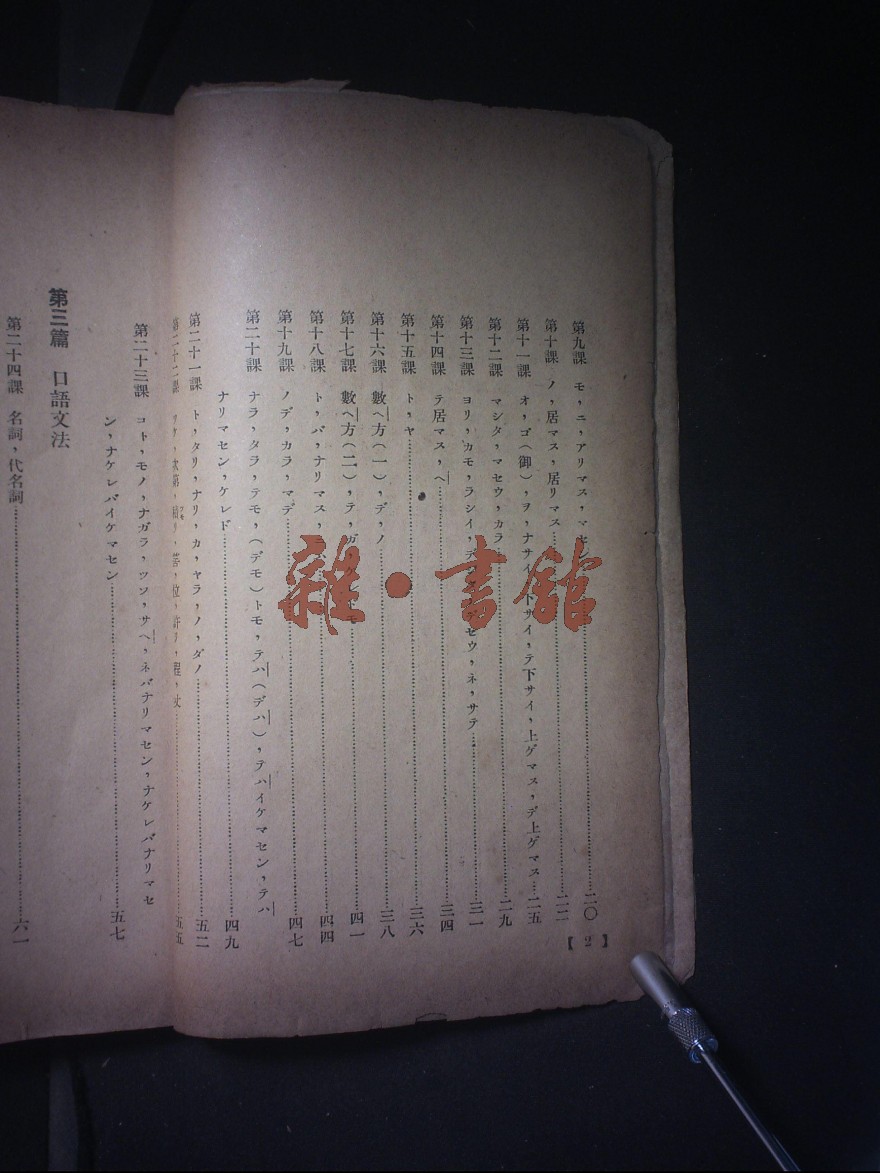 第九課 モ，ニ，アリマス，マセ
第十課 ノ，居マス，居リマス……二二
第十一課 オ，ゴ（御），ヲ，ナサイ，下サイ，テ下サイ，上ゲマス，デ上ゲマス……二五
第十二課 マシタ，マセウ，カラ……二九
第十三課 ヨリ，カモ，ラシイ，デセウ，ネ，サテ……三一
第十四課 テ居マス，ヘ……三四
第十五課 ト，ヤ……三六
第十六課 數ヘ方（一），デ，ノ……三八
第十七課 數ヘ方（二），テ，ガ……四一
第十八課 ト，バ，ナリマス，……四四
第十九課 ノデ，カラ，マデ……四七
第二十課 ナラ，タラ，テモ，（デモ）トモ，テハ（デハ），テハイケマセン，テハ
ナリマセン，ケレド……四九
第二十一課 ト，タリ，ナリ，カ，ヤラ，ノ，ダノ……五二
第二十二課 次第，積リ，答，位，許リ，程，丈……五五
第二十三課 コト，モノ，ナガラ，ツツ，サヘ，ネバナリマセン，ナケレバナリマセ
ン，ナケレバイケマセン……五七
第三篇 口語文法
第二十四課 名詞，代名詞……六一
二〇
【2】
雜·書館